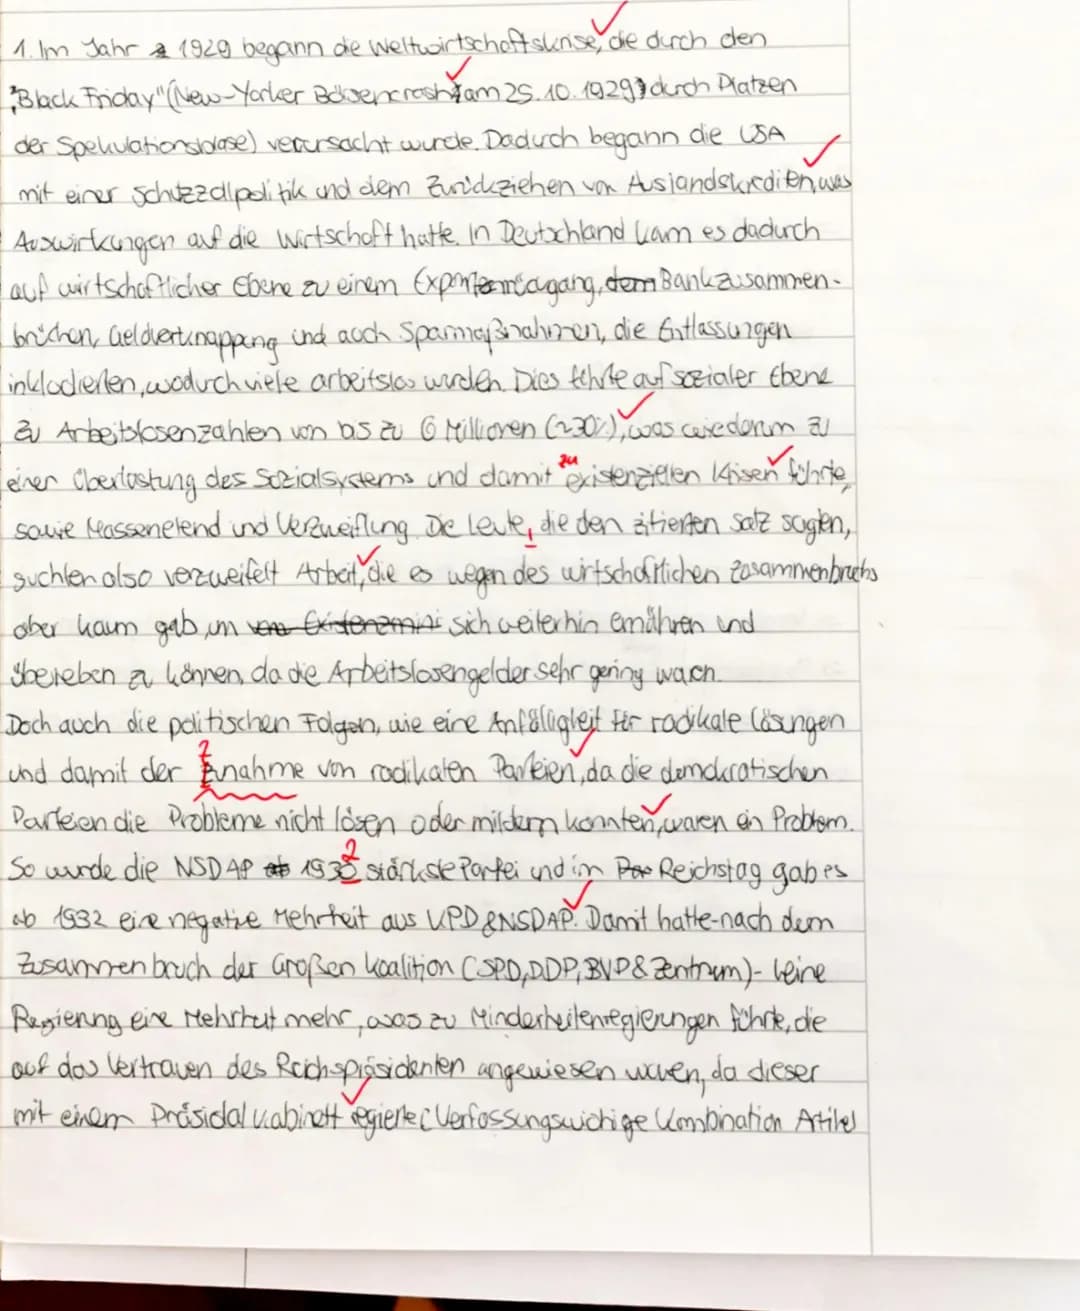 1. Im Jahr 1929 begann die Weltwirtschaftskrise, die durch den
"Black Friday" (New-Yorker Börsencrash am 25.10.1929 durch Platzen
der Spekulationsblase) verursacht wurde. Daduch begann die USA
mit einer Schutzzollpolitik und dem Zurückziehen von Auslandskrediten, was
Auswirkungen auf die Wirtschaft hatte. In Deutschland kam es dadurch
auf wirtschaftlicher Ebene zu einem Exportrückgang, dem Bankzusammen-
brüchen, Geldverknappung und auch Sparmaßnahmen, die Entlassungen
inkludierten, wodurch viele arbeitslos wurden. Dies führte auf sozialer Ebene
zu Arbeitslosenzahlen von bis zu 6 Millionen (~30%), was wiederum zu
einer Überlastung des Sozialsystems und damit zu existenziellen Krisen führte,
sowie Massenelend und Verzweiflung. Die Leute, die den zitierten Satz sagten,
suchten also verzweifelt Arbeit, die es wegen des wirtschaftlichen Zusammenbruchs
aber kaum gab, um Existenzmini sich weiterhin ernähren und
überleben zu können, da die Arbeitslosengelder sehr gering waren.
Doch auch die politischen Folgen, wie eine Anfälligkeit für radikale Lösungen
und damit der Znahme von radikalen Parteien, da die demokratischen
Parteien die Probleme nicht lösen oder mildern konnten, waren ein Problem.
So wurde die NSDAP ab 1932 stärkste Partei und im Reichstag gab es
ab 1932 eine negative Mehrheit aus KPD & NSDAP. Damit hatte - nach dem
Zusammenbruch der Großen Koalition (SPD, DDP, BVP & Zentrum) - keine
Regierung eine Mehrheit mehr, was zu Minderheitenregierungen führte, die
auf das Vertrauen des Reichspräsidenten angewiesen waren, da dieser
mit einem Präsidalkabinett regierte (Verfassungswichige Kombination Artikel